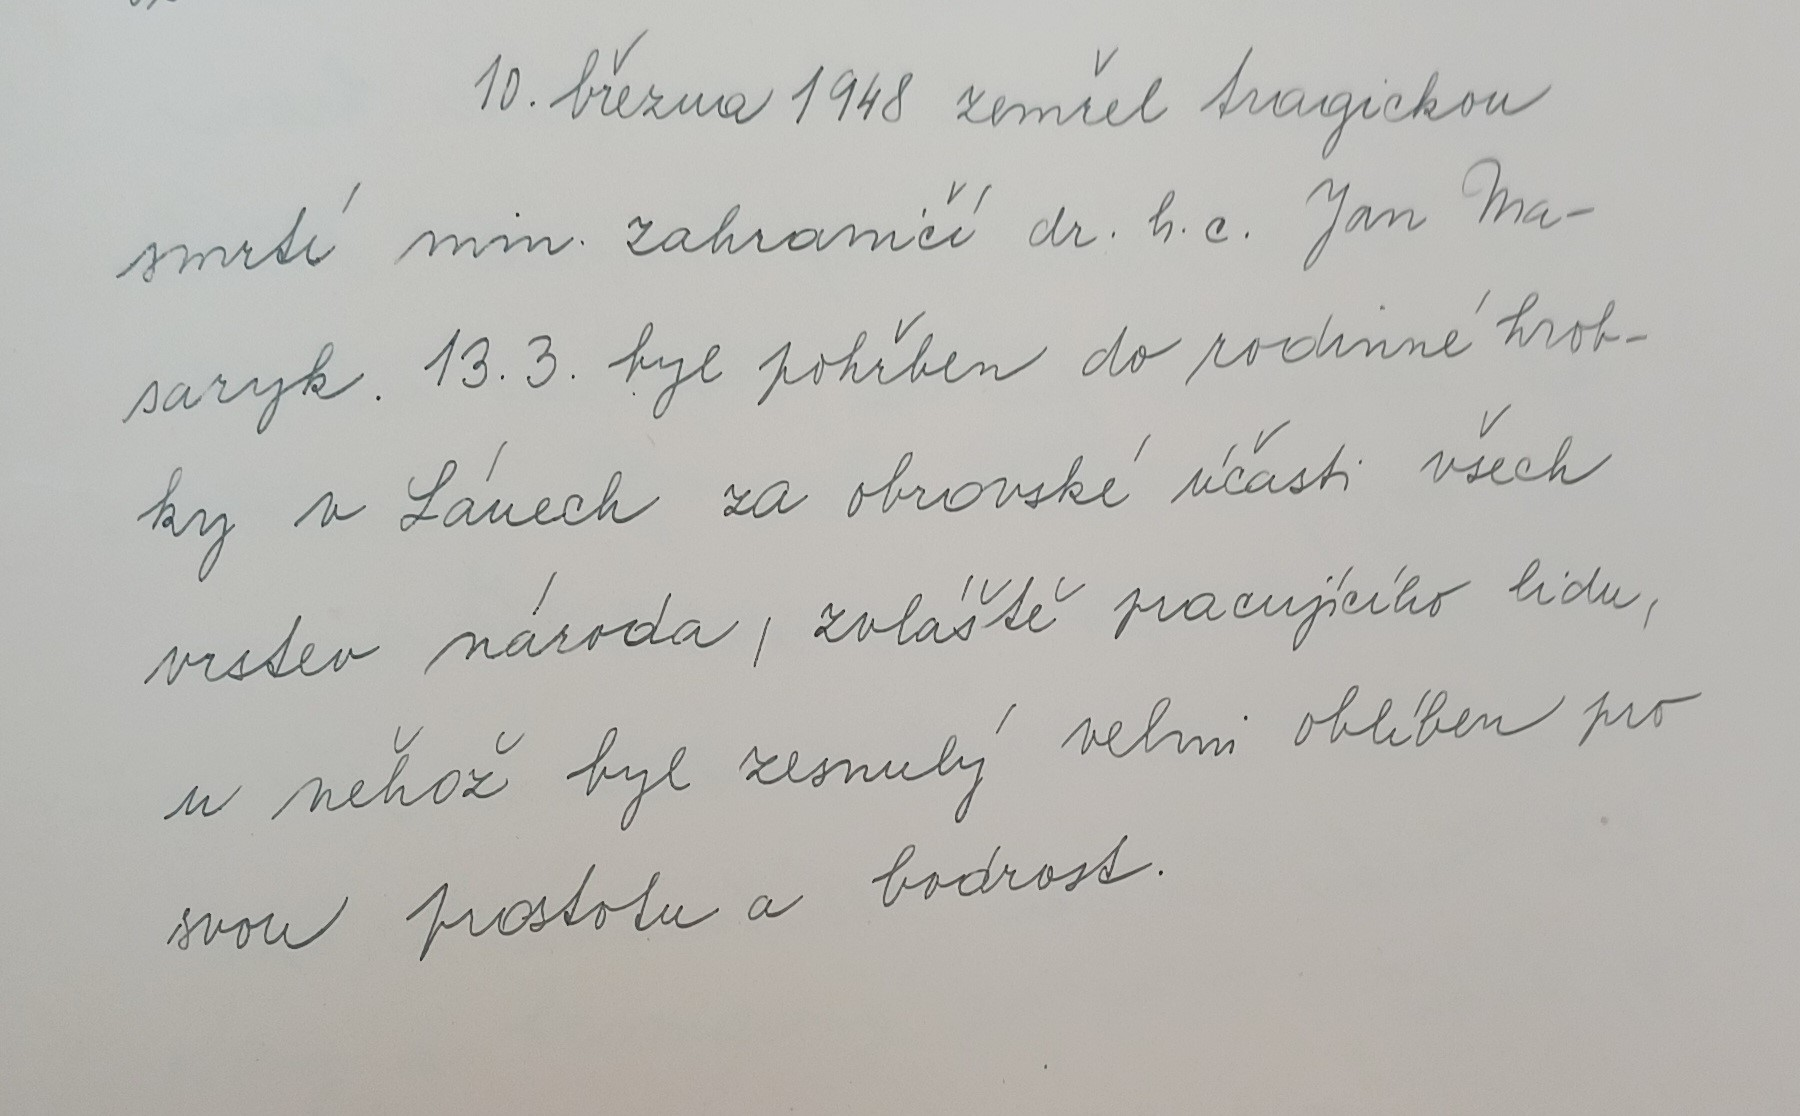 10. března 1948 zemřel tragickou
smrtí min. zahraničí dr. h. c. Jan Ma-
saryk. 13. 3. byl pohřben do rodinné hrob-
ky v Lánech za obrovské účasti všech
vrstev národa, zvláště pracujícího lidu,
u něhož byl zesnulý velmi oblíben pro
svou prostotu a bodrost.